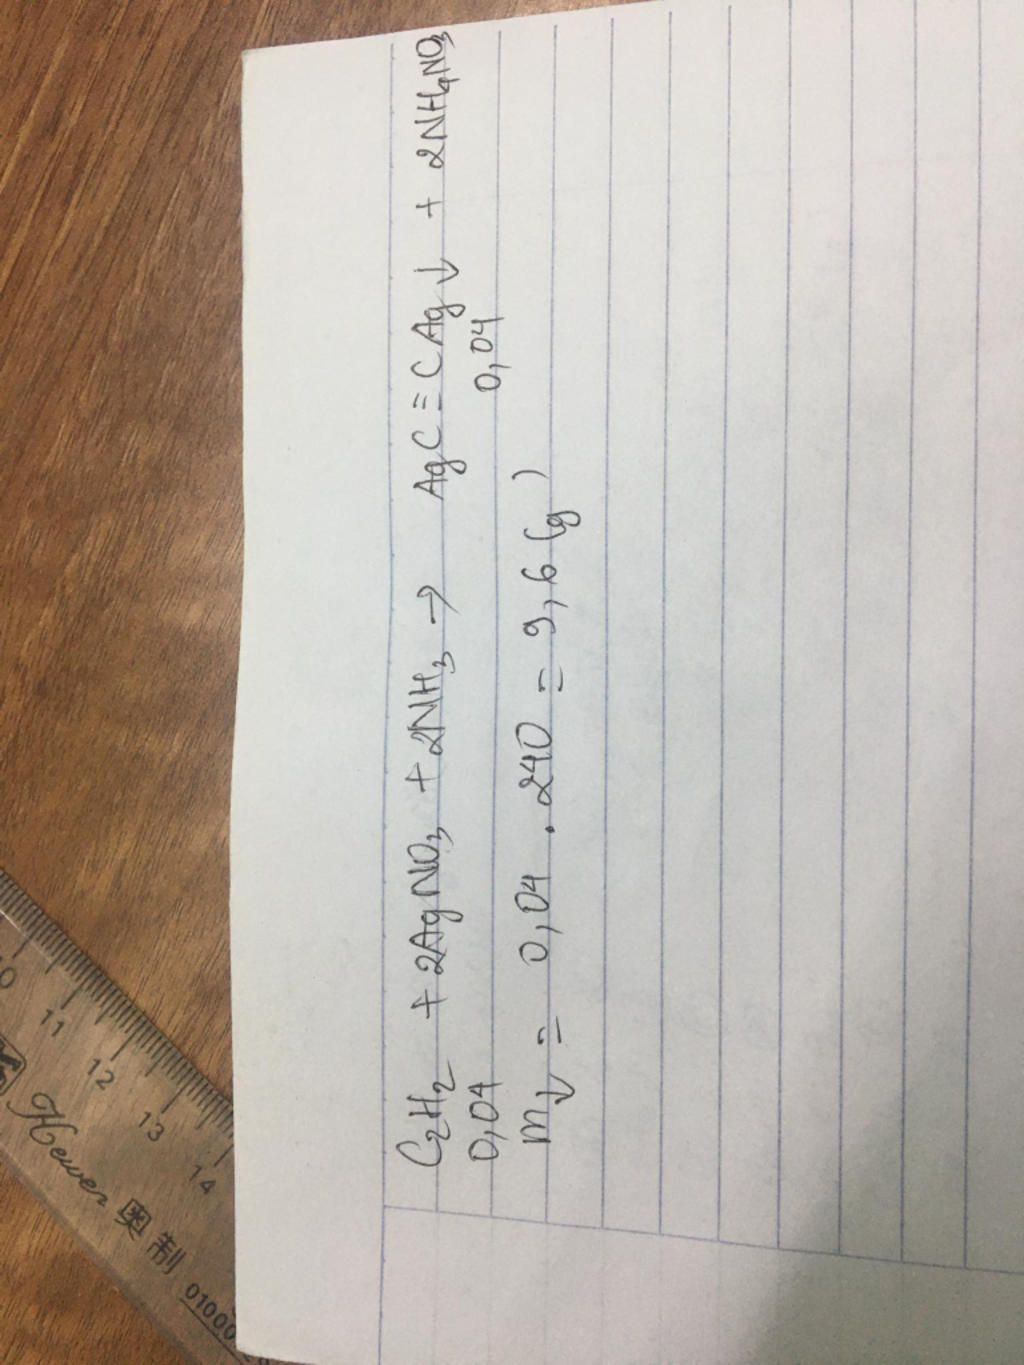 C₂H₂ + 2AgNO₃ + 2NH₃ → AgC≡CAg↓ + 2NH₄NO₃
0,04 0,04
m↓ = 0,04 . 240 = 9,6 (g)
10 11 12 13 14
Hewen 奥制